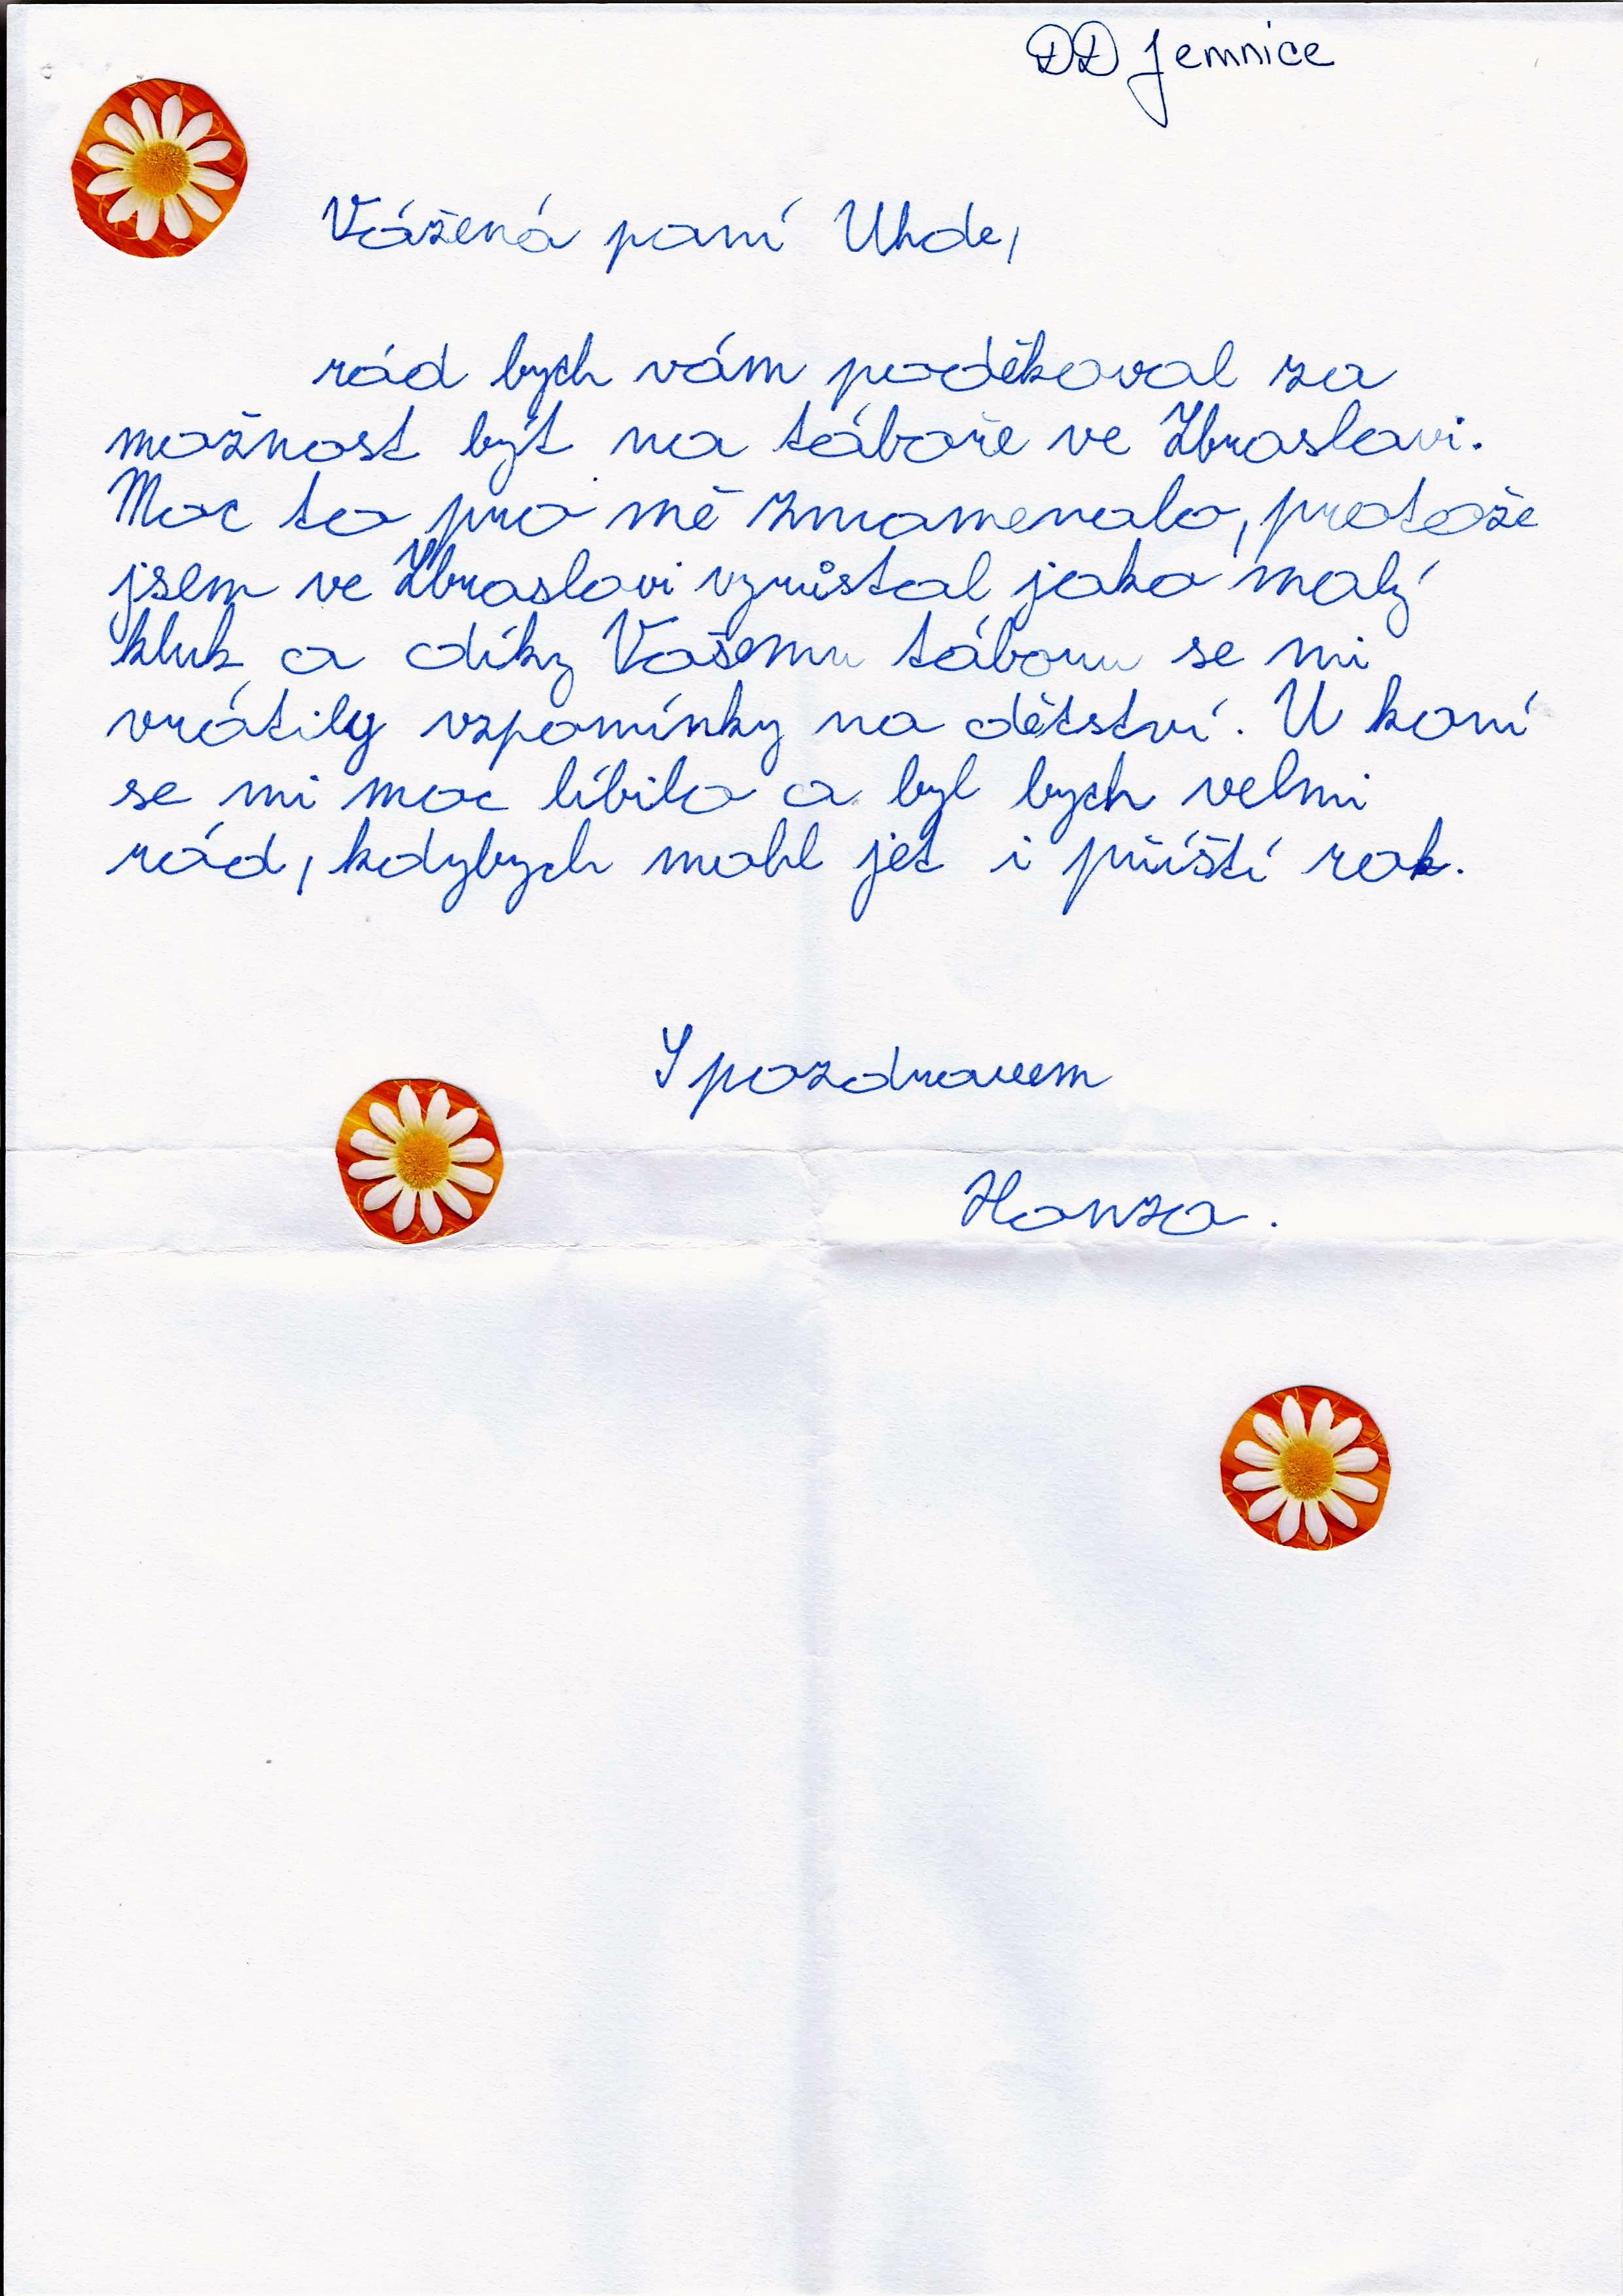 DD Jemnice
Vážená paní Uhde,
rád bych vám poděkoval za
možnost být na táboře ve Zbraslavi.
Moc to pro mě znamenalo, protože
jsem ve Zbraslavi vyrůstal jako malý
kluk a díky Vašemu táboru se mi
vrátily vzpomínky na dětství. U koní
se mi moc líbilo a byl bych velmi
rád, kdybych mohl jet i příští rok.
S pozdravem
Honza.